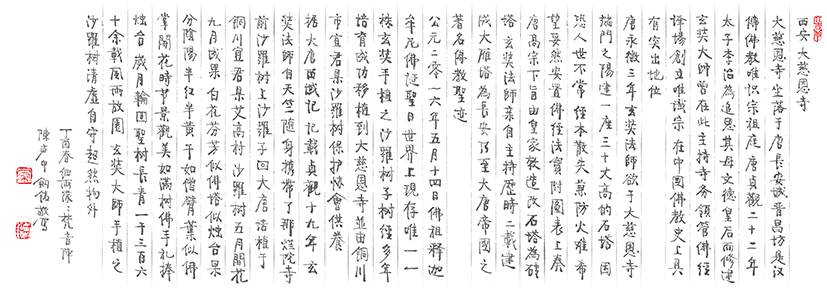 西安大慈恩寺
大慈恩寺坐落于唐長安城晋昌坊是汉
傳佛教唯识宗祖庭唐貞觀二十二年
太子李治為追思其母文德皇后而修建
玄奘大師曾在此主持寺务領管佛经
译場創立唯識宗在中國佛教史上具
有突出地位
唐永徽三年玄奘法師欲于大慈恩寺
端門之陽建一座三十丈高的石塔因
恐人世不常经本散失兼防火难希
望妥然安置佛经法寶附图表上奏
唐高宗下旨由皇家敕造改石塔為磚
塔玄奘法師亲自主持歷時二載建
成大雁塔為長安乃至大唐帝國之
著名佛教聖迹
公元二零一六年五月十四日佛祖釋迦
牟尼佛诞聖日世界上現存唯一一
棵玄奘手植之沙羅樹子树经多年
培育成功移植到大慈恩寺並由銅川
市宜君县沙羅树保护协會供養
据大唐西域记记載貞觀十九年玄
奘法師自天竺随身携带了那烂陀寺
前沙羅树上沙羅子回大唐活植于
铜川宜君县艾高村沙羅树五月開花
九月成果白花芬芳似佛塔似燭台果
分陰陽半红半黄于如僧臂葉似佛
掌開花時节景觀美如滿树佛手礼捧
燭台歲月輪回聖树長青一千三百六
十余載風雨故園玄奘大師手植之
沙羅树清虚自守超然物外
丁酉春
陳